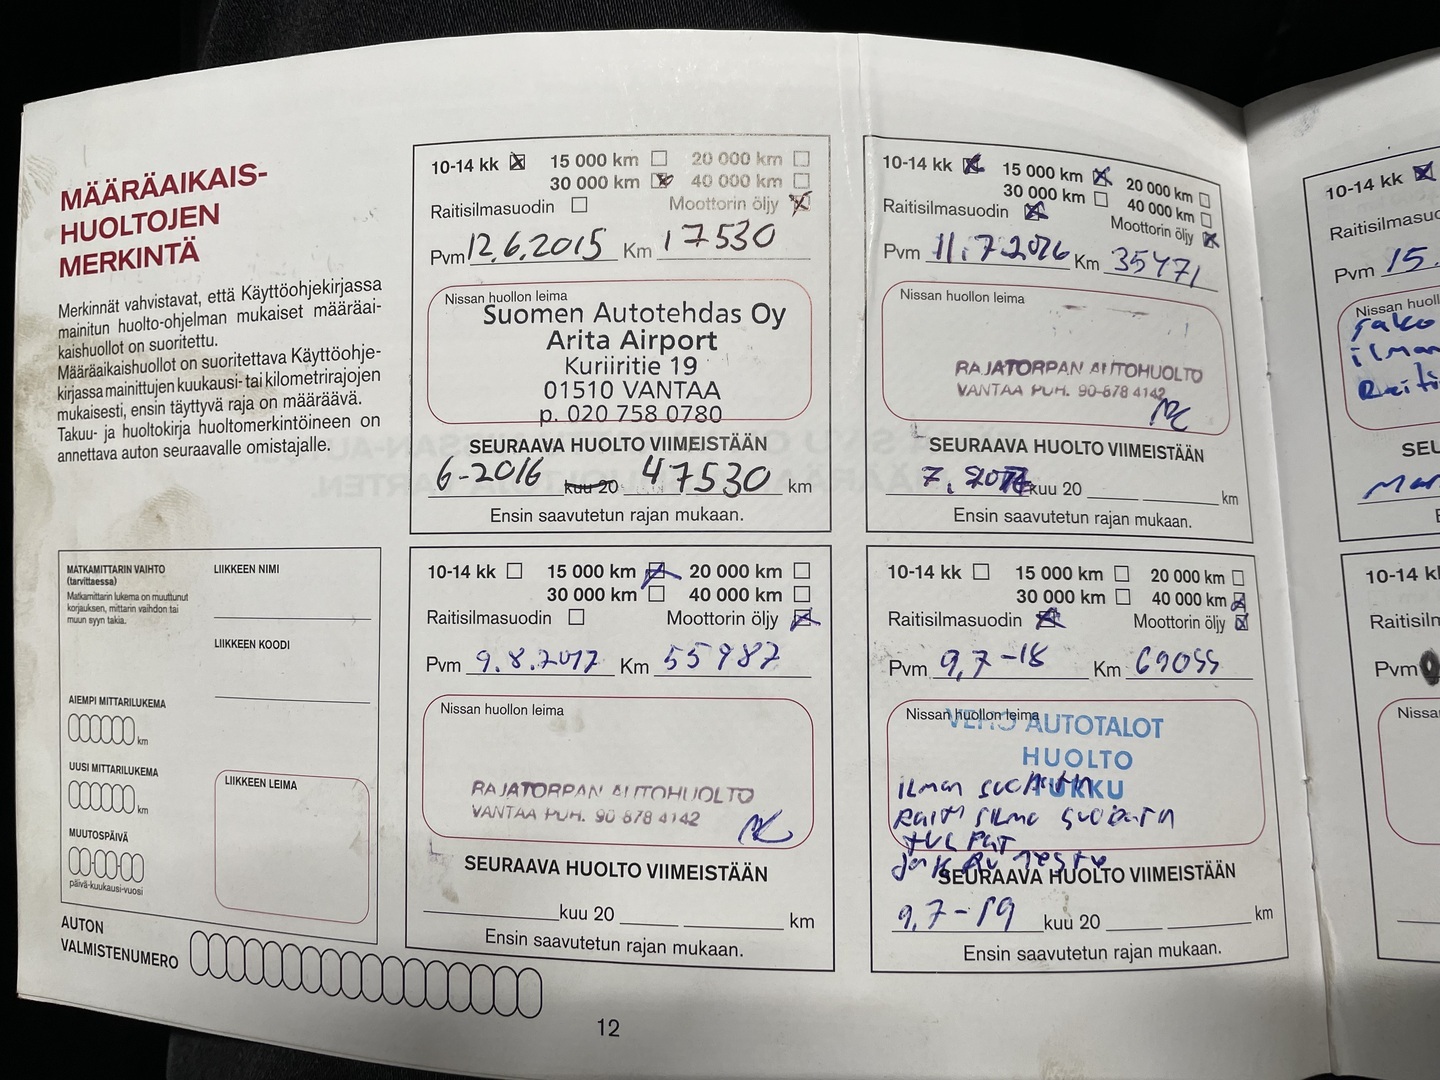 MÄÄRÄAIKAIS-
HUOLTOJEN
MERKINTÄ
Merkinnät vahvistavat, että Käyttöohjekirjassa
mainitun huolto-ohjelman mukaiset määräai-
kaishuollot on suoritettu.
Määräaikaishuollot on suoritettava Käyttöohje-
kirjassa mainittujen kuukausi- tai kilometrirajojen
mukaisesti, ensin täyttyvä raja on määräävä.
Takuu- ja huoltokirja huoltomerkintöineen on
annettava auton seuraavalle omistajalle.
MATKAMITTARIN VAIHTO
(tarvittaessa)
Matkamittarin lukema on muuttunut
korjauksen, mittarin vaihdon tai
muun syyn takia.
LIIKKEEN NIMI
LIIKKEEN KOODI
AIEMPI MITTARILUKEMA
km
UUSI MITTARILUKEMA
km
MUUTOSPÄIVÄ
päivä-kuukausi-vuosi
LIIKKEEN LEIMA
AUTON
VALMISTENUMERO
10-14 kk 15 000 km 20 000 km
30 000 km 40 000 km
Raitisilmasuodin Moottorin öljy
Pvm 12.6.2015 Km 17530
Nissan huollon leima
Suomen Autotehdas Oy
Arita Airport
Kuriiritie 19
01510 VANTAA
p. 020 758 0780
SEURAAVA HUOLTO VIIMEISTÄÄN
6-2016 kuu 20 47530 km
Ensin saavutetun rajan mukaan.
10-14 kk 15 000 km 20 000 km
30 000 km 40 000 km
Raitisilmasuodin Moottorin öljy
Pvm 11.7.2016 Km 35471
Nissan huollon leima
RAJATORPAN AUTOHUOLTO
VANTAA PUH. 90-878 4142
SEURAAVA HUOLTO VIIMEISTÄÄN
7. kuu 20 km
Ensin saavutetun rajan mukaan.
10-14 kk 15 000 km 20 000 km
30 000 km 40 000 km
Raitisilmasuodin Moottorin öljy
Pvm 9.8.2017 Km 55987
Nissan huollon leima
RAJATORPAN AUTOHUOLTO
VANTAA PUH. 90-878 4142
SEURAAVA HUOLTO VIIMEISTÄÄN
kuu 20 km
Ensin saavutetun rajan mukaan.
10-14 kk 15 000 km 20 000 km
30 000 km 40 000 km
Raitisilmasuodin Moottorin öljy
Pvm 9,7-18 Km 69055
Nissan huollon leima
VEHO AUTOTALOT
HUOLTO
TURKKU
ilman suodatin
Raitis ilma suodatin
TULPAT
jarru neste
SEURAAVA HUOLTO VIIMEISTÄÄN
9,7-19 kuu 20 km
Ensin saavutetun rajan mukaan.
10-14 kk
Pvm 15.
Nissan
10-14
Pvm
12